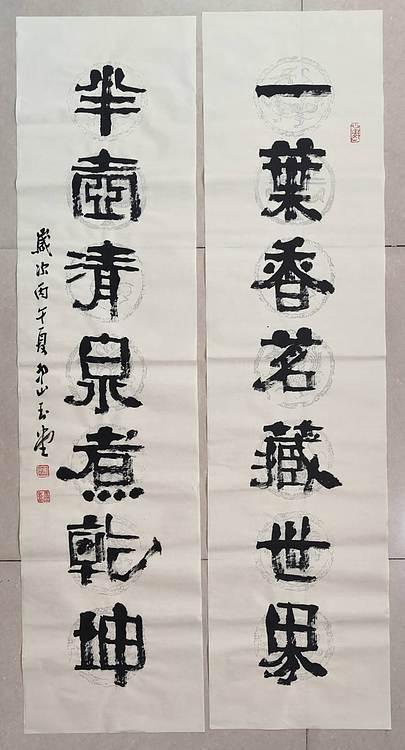 一葉香茗藏世界
半壺清泉煮乾坤
歲次丙午夏山玉堂